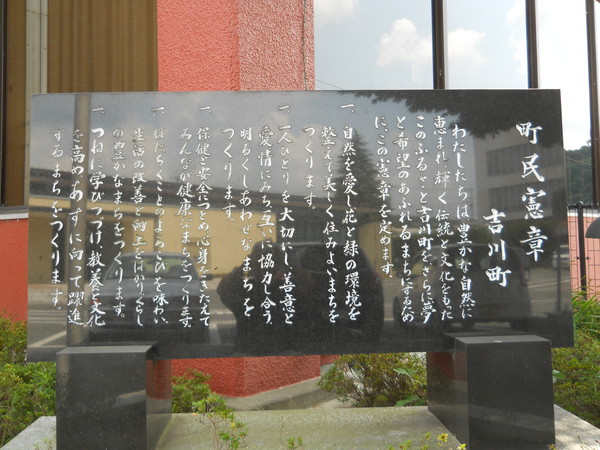 町民憲章
吉川町
わたしたちは豊かな自然に
恵まれ、輝く伝統と文化をもた
このふるさと吉川町をさらに夢
と希望のあふれるまちにするため
にこの憲章を定めます。
一、自然を愛し花と緑の環境を
整えて美しく住みよいまちを
つくります。
一、一人ひとりを大切にし、善意と
愛情にみち、互いに協力し合う、
明るくしあわせなまちを
つくります。
一、保健と安全につとめ心身をきたえて
みんなが健康なまちをつくります。
一、はたらくことのよろこびを味わい、
生活の改善と向上をはかりくらし
の豊かなまちをつくります。
一、つねに学びつづけ、教養と文化
を高め、あすに向って躍進
するまちをつくります。